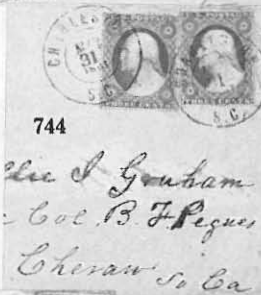 CHARLES
31
S.C.
S.C.
744
llie I Graham
Col. B. F Pegues
Cheraw So Ca